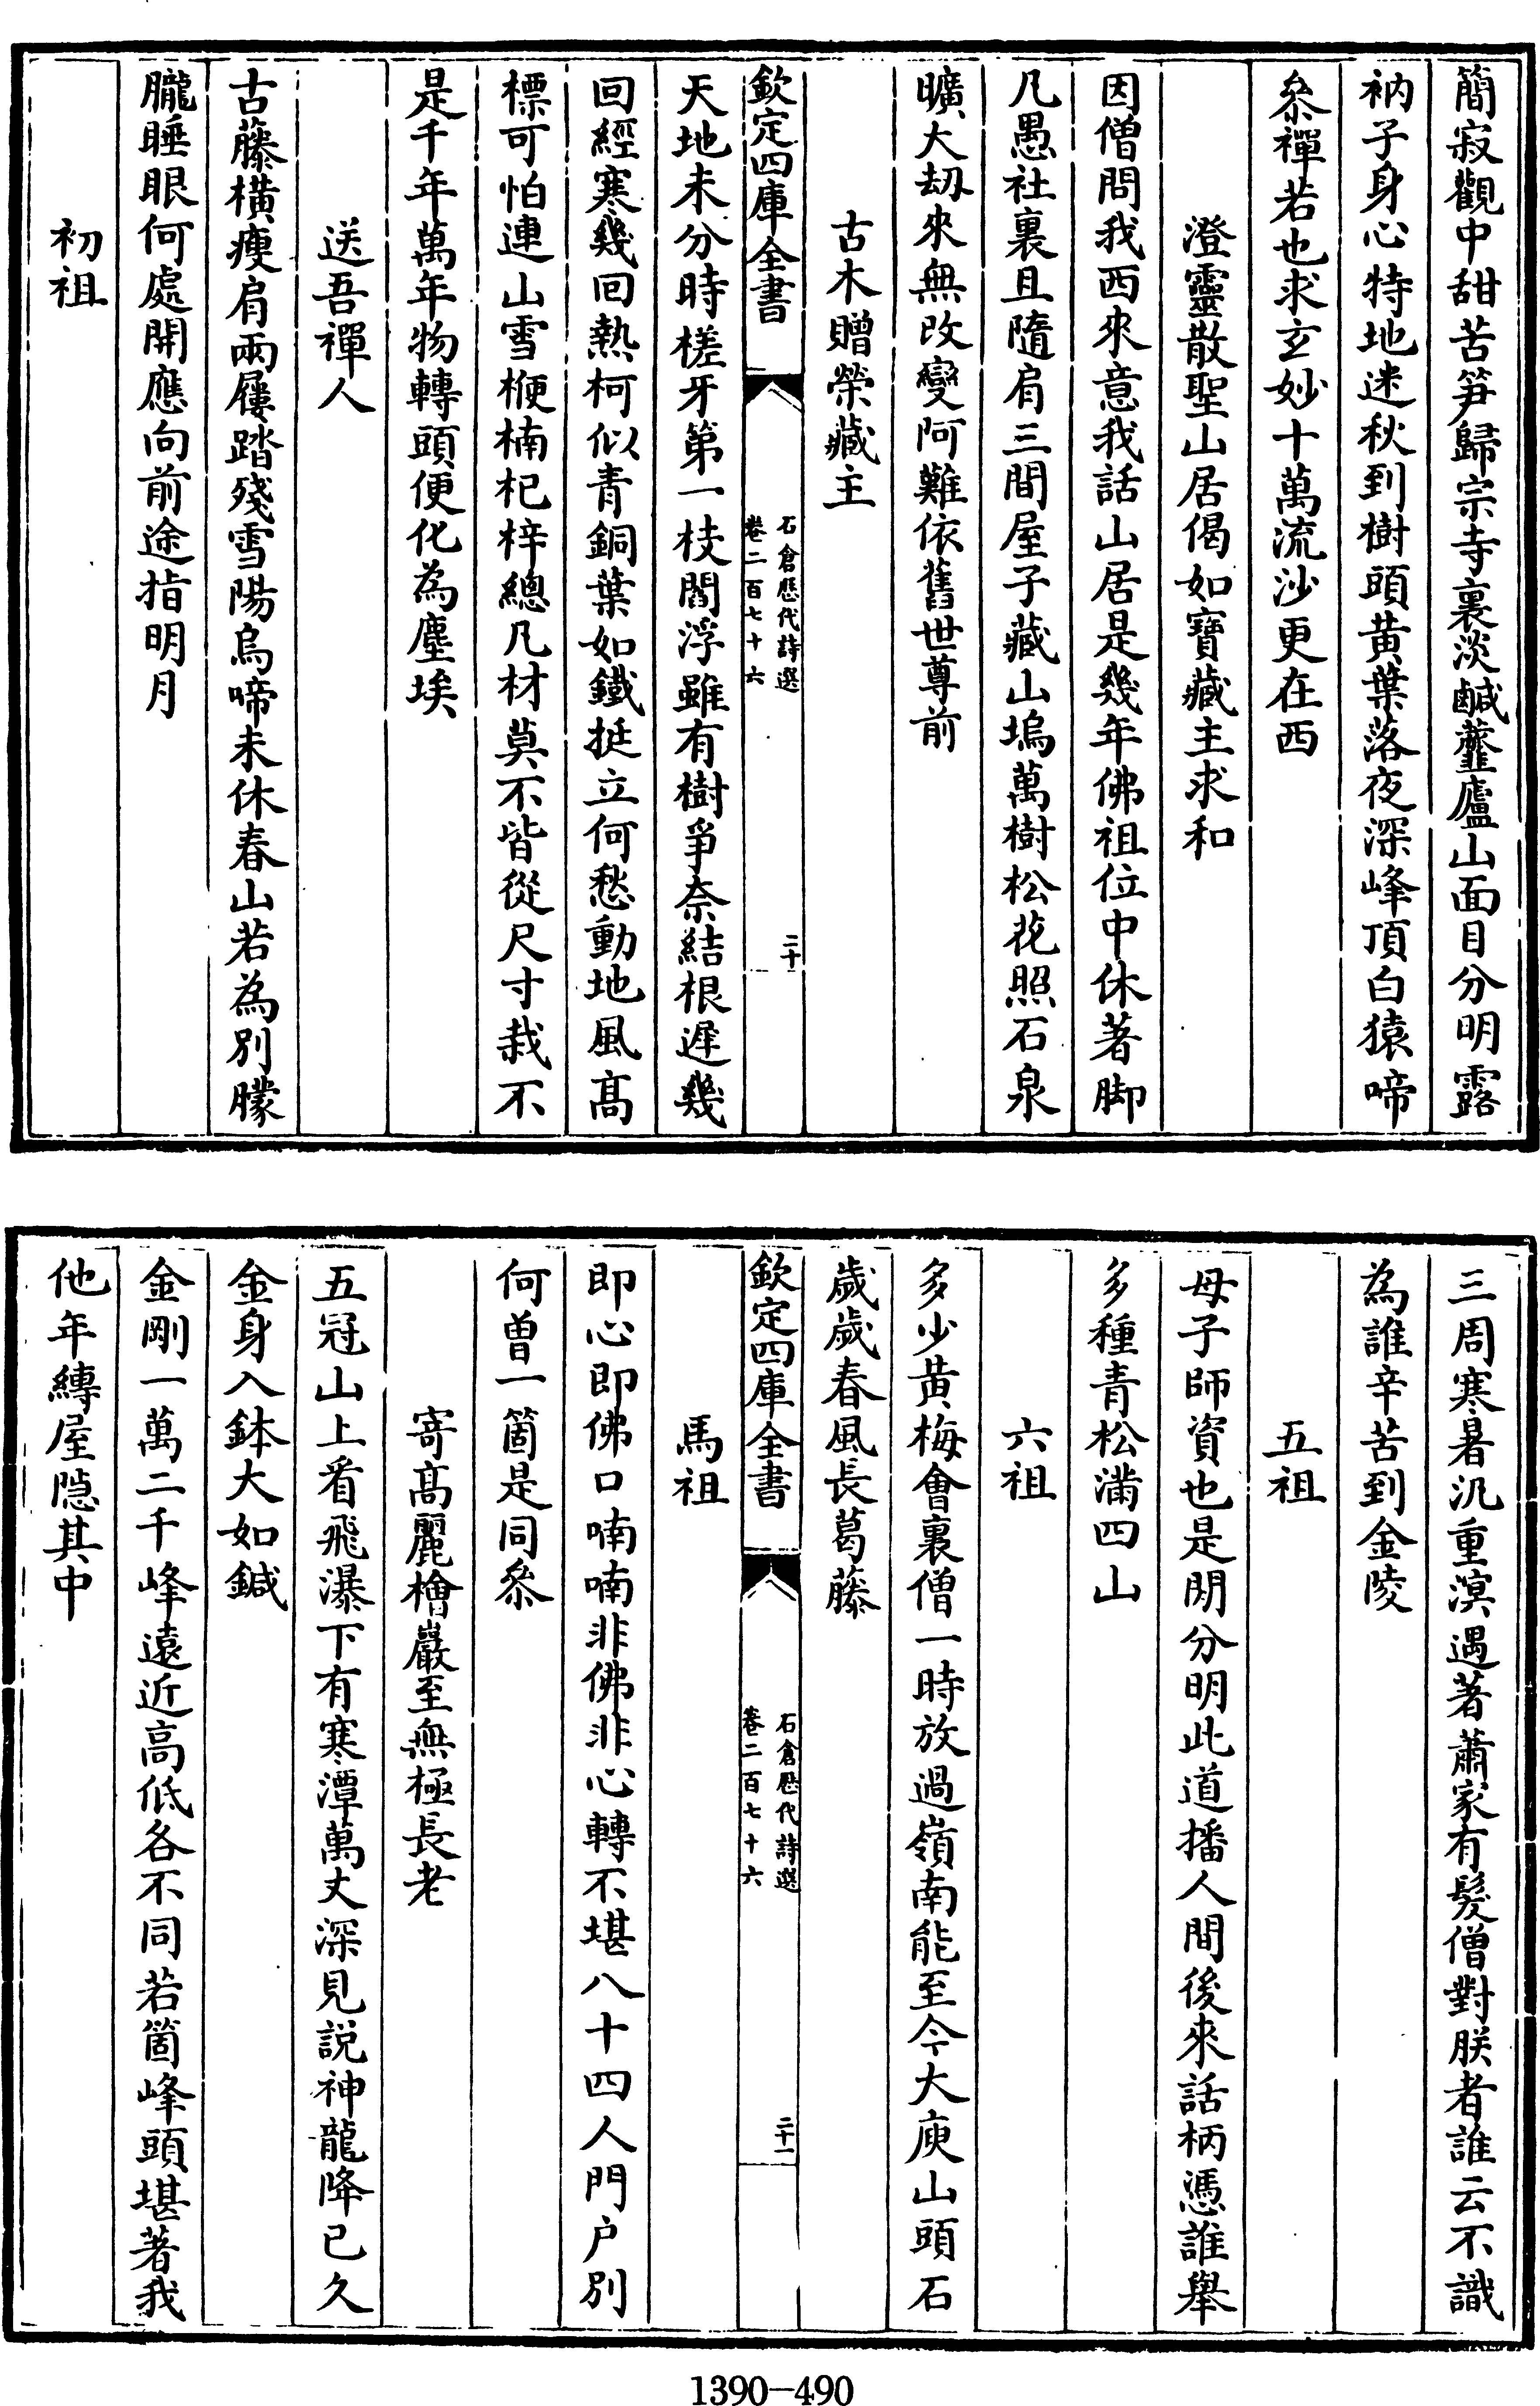 簡寂觀中甜苦笋歸宗寺裏淡鹹虀廬山面目分明露
衲子身心特地迷秋到樹頭黃葉落夜深峰頂白猿啼
叅禪若也求玄妙十萬流沙更在西
澄靈散聖山居偈如寶藏主求和
因僧問我西來意我話山居是幾年佛祖位中休著脚
凡愚社裏且隨肩三間屋子藏山塢萬樹松花照石泉
曠大刼來無改變阿難依舊世尊前
古木贈榮藏主
欽定四庫全書
石倉歷代詩選
卷二百七十六
二十
天地未分時槎牙第一枝閻浮雖有樹爭奈結根遲幾
回經寒幾回熱柯似青銅葉如鐵挺立何愁動地風髙
標可怕連山雪楩楠杞梓總凡材莫不皆從尺寸栽不
是千年萬年物轉頭便化為塵埃
送吾禪人
古藤橫瘦肩兩屨踏殘雪陽烏啼未休春山若為別朦
朧睡眼何處開應向前途指明月
初祖
三周寒暑汎重溟遇著蕭家有髮僧對朕者誰云不識
為誰辛苦到金陵
五祖
母子師資也是閒分明此道播人間後來話柄憑誰舉
多種青松滿四山
六祖
多少黃梅會裏僧一時放過嶺南能至今大庾山頭石
歲歲春風長葛藤
欽定四庫全書
石倉歷代詩選
卷二百七十六
二十一
馬祖
即心即佛口喃喃非佛非心轉不堪八十四人門户別
何曽一箇是同叅
寄髙麗檜巖至無極長老
五冠山上看飛瀑下有寒潭萬丈深見説神龍降已久
金身入鉢大如鍼
金剛一萬二千峰遠近高低各不同若箇峰頭堪著我
他年縳屋隐其中
1390-490